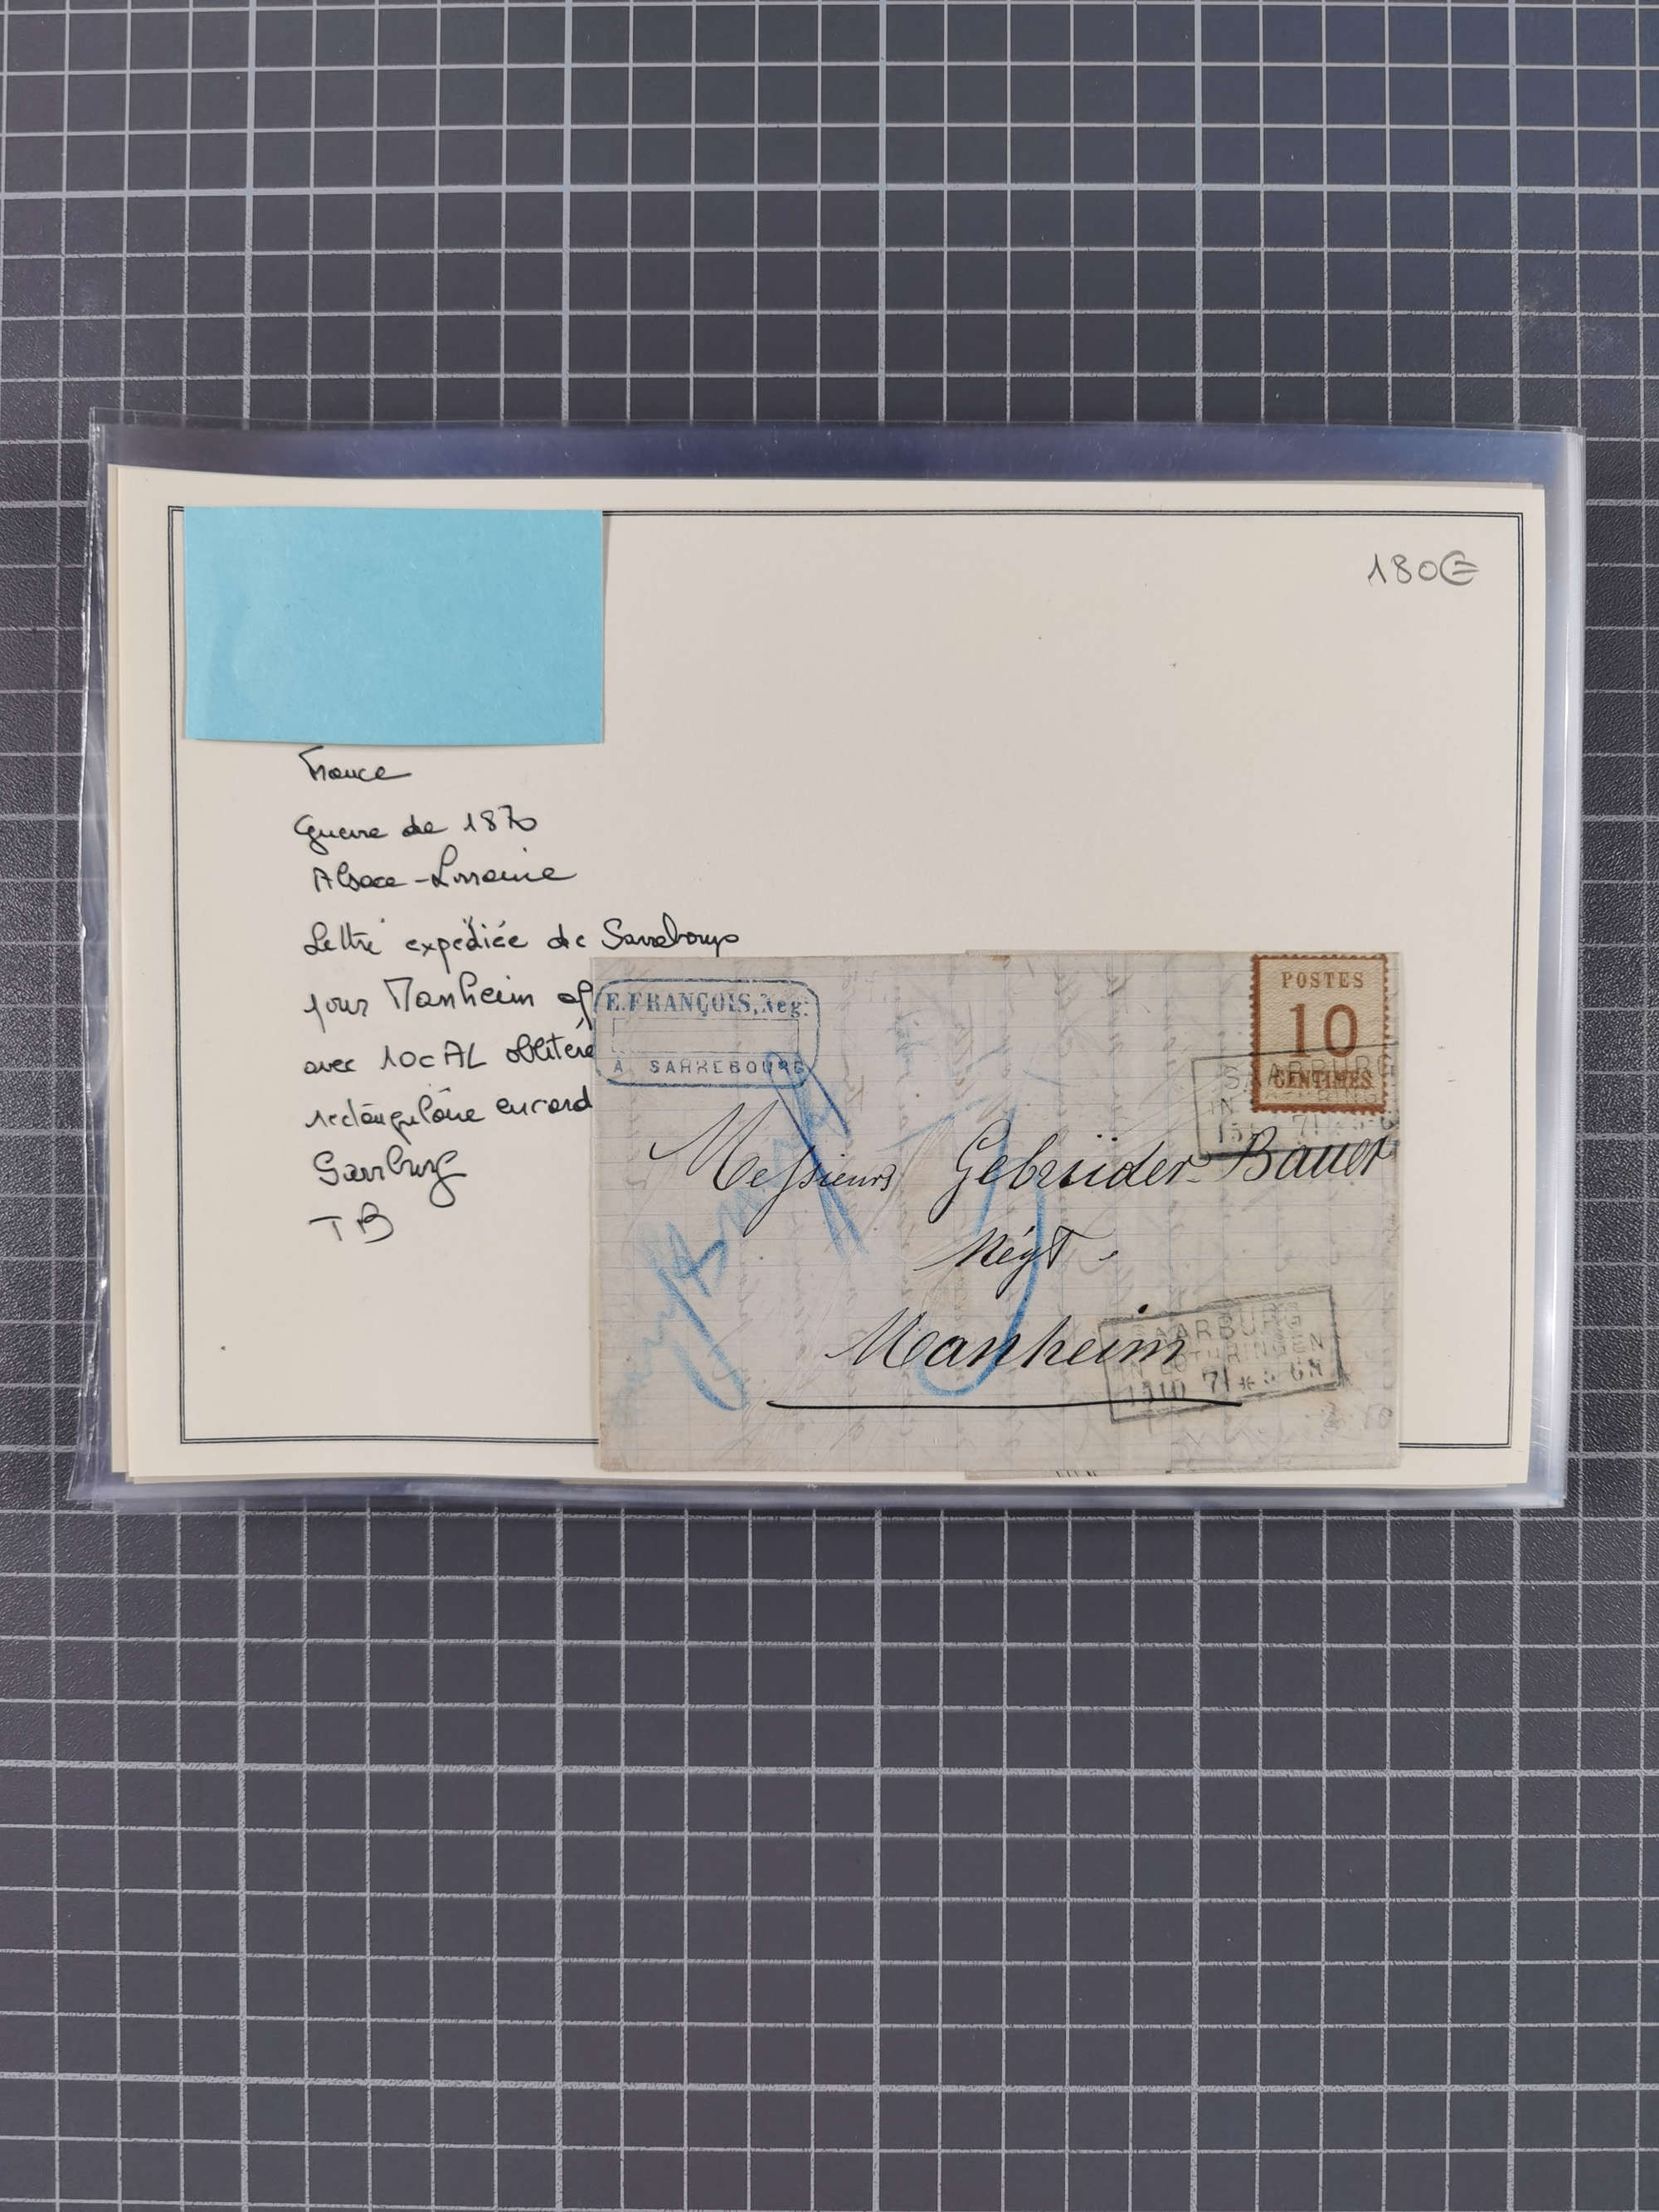 180€
France
Guerre de 1870
Alsace-Lorraine
Lettre expédiée de Sarrebourg
pour Manheim aff
avec 10c AL oblitéré
rectangulaire encard
Saarburg
TB
E. FRANÇOIS, Nég.
A SARREBOURG
POSTES
10
CENTIMES
SAARBURG
IN
71
Messieurs Gebrüder Bauer
Négt
Manheim
SAARBURG
IN LOTHRINGEN
71 *